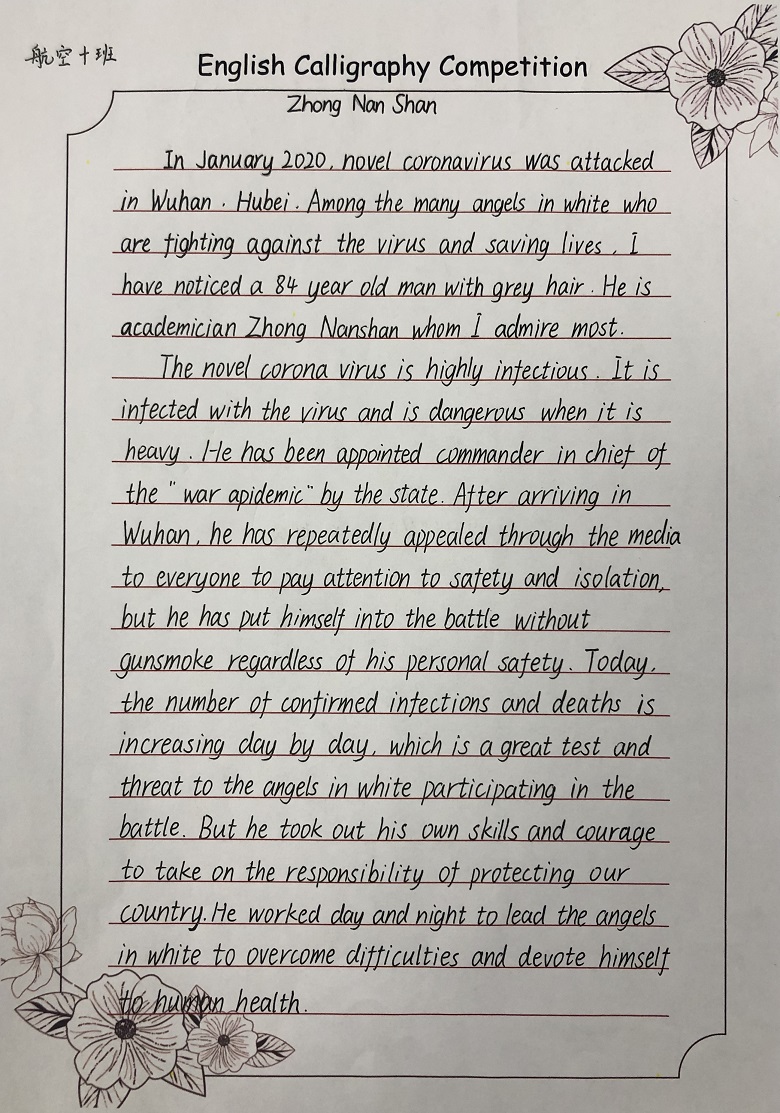 航空十班
English Calligraphy Competition
Zhong Nan Shan
In January 2020, novel coronavirus was attacked
in Wuhan . Hubei . Among the many angels in white who
are fighting against the virus and saving lives , I
have noticed a 84 year old man with grey hair . He is
academician Zhong Nanshan whom I admire most.
The novel corona virus is highly infectious . It is
infected with the virus and is dangerous when it is
heavy . He has been appointed commander in chief of
the "war apidemic" by the state. After arriving in
Wuhan, he has repeatedly appealed through the media
to everyone to pay attention to safety and isolation,
but he has put himself into the battle without
gunsmoke regardless of his personal safety. Today,
the number of confirmed infections and deaths is
increasing day by day, which is a great test and
threat to the angels in white participating in the
battle. But he took out his own skills and courage
to take on the responsibility of protecting our
country. He worked day and night to lead the angels
in white to overcome difficulties and devote himself
to human health.